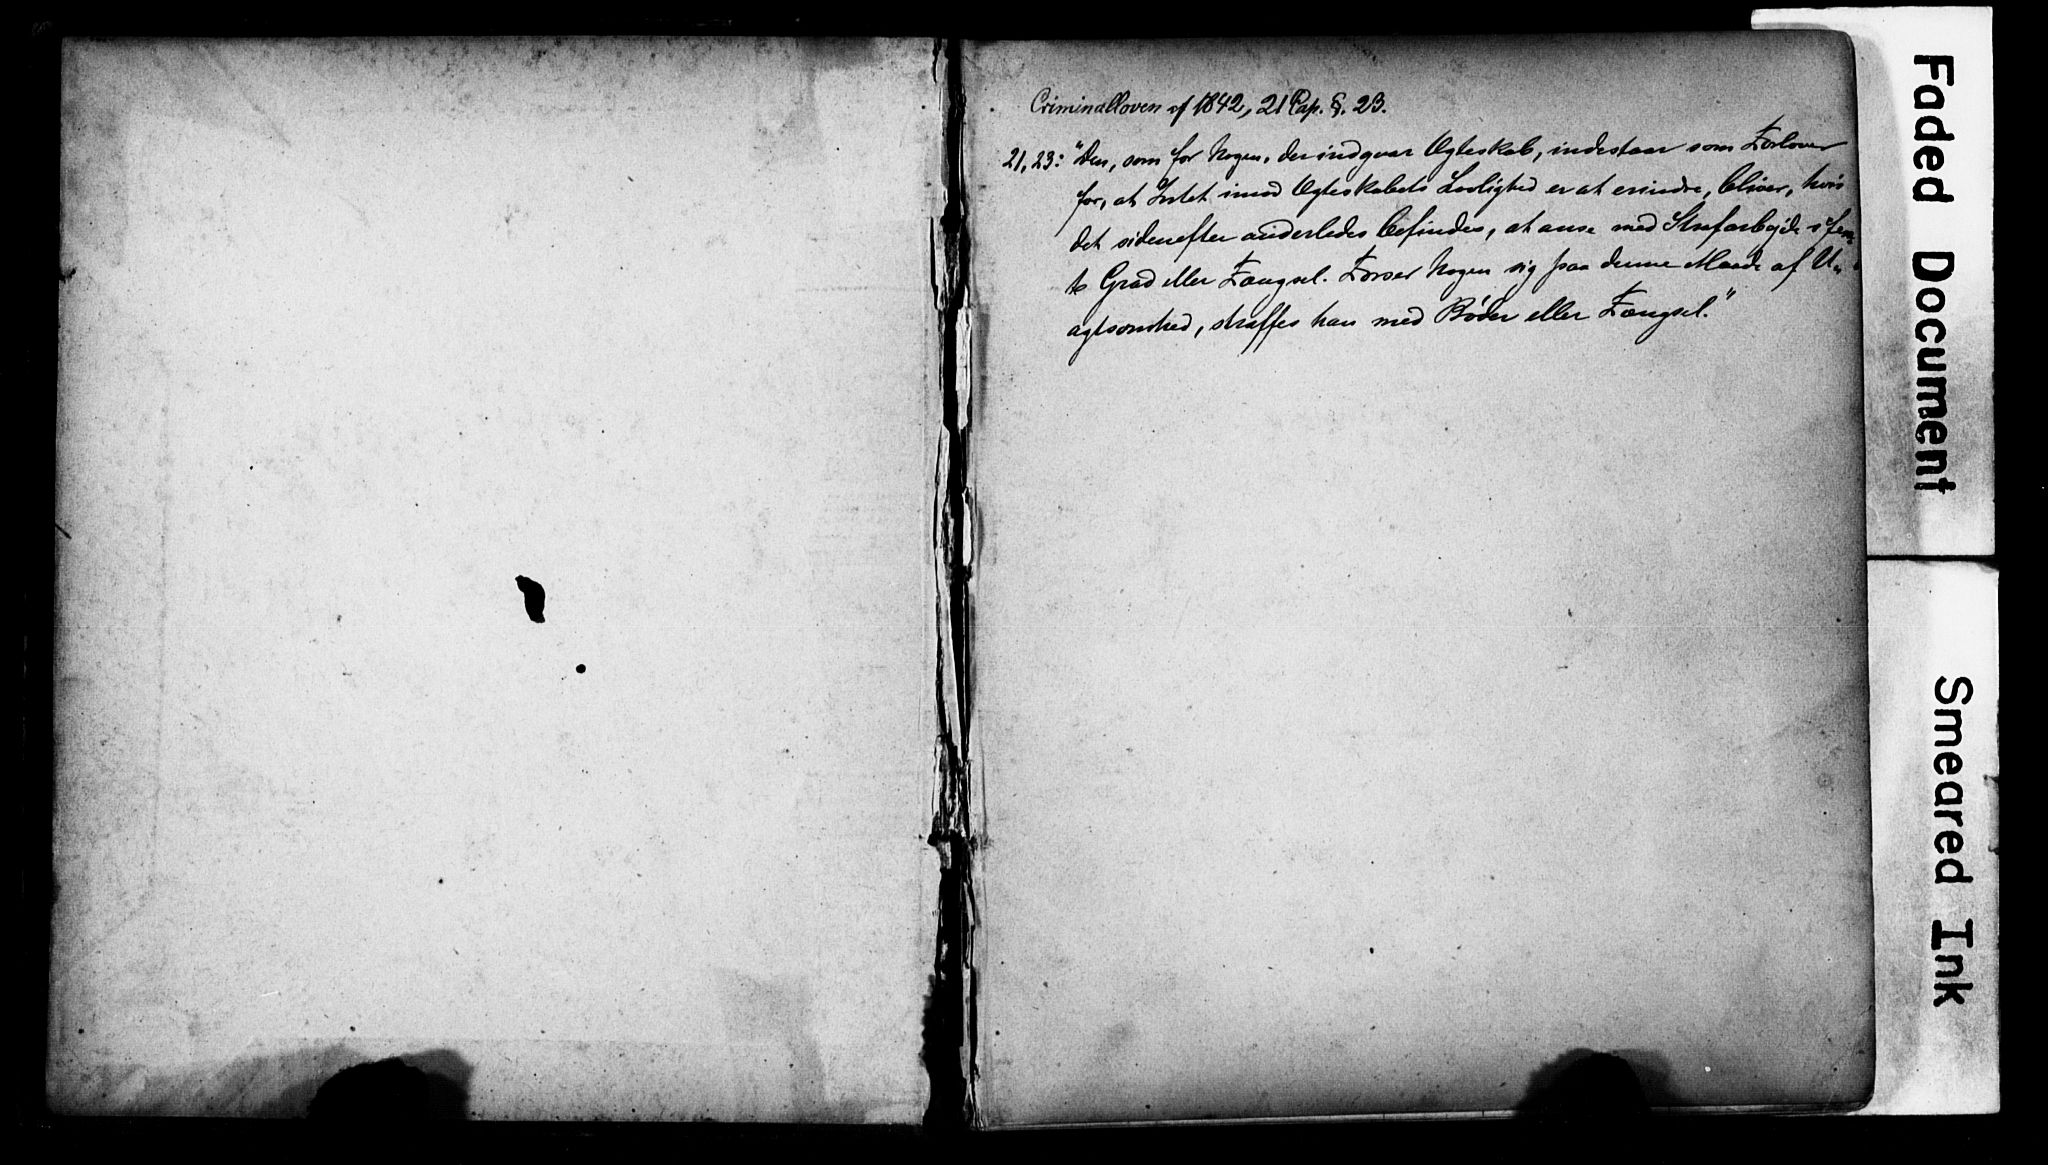 Criminalloven af 1842, 21 Cap. §. 23.
21,23: "Den, som for Nogen, der indgaar Ægteskab, indestaar som Forlover
for, at Intet imod Ægteskabets Lovlighed er at erindre, bliver, hvis
det sidenefter anderledes befindes, at anse med Strafarbejde i fem-
te Grad eller Fængsel. Forser Nogen sig paa denne Maade af U-
agtsomhed, straffes han med Bøder eller Fængsel."
Faded Document
Smeared Ink